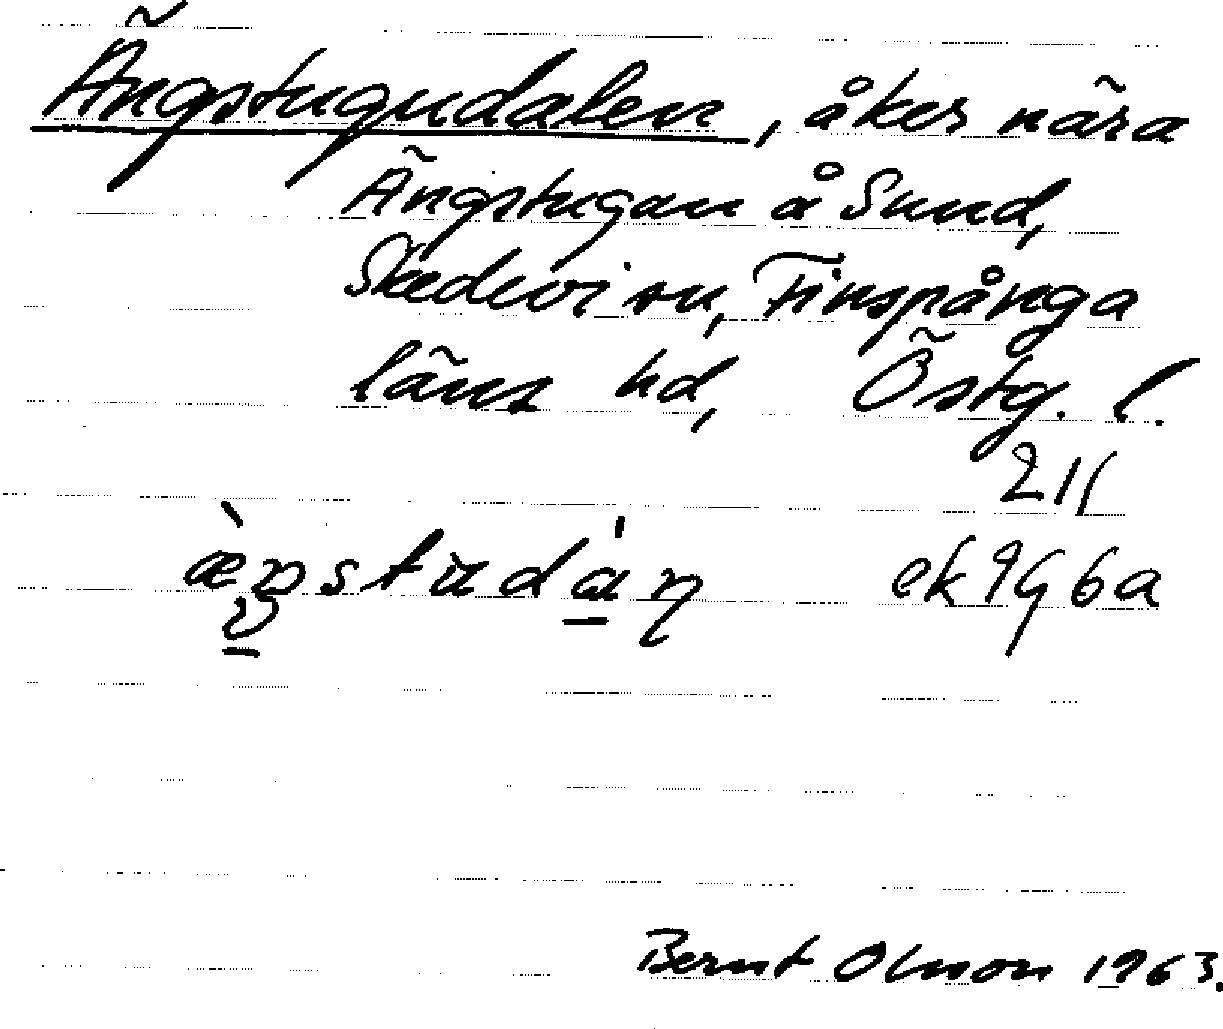 Ängstugudalen, åker nära
Ängstugan å Sund,
Skedevi sn, Finspånga
läns hd, Östg. l.
211
ek 9G6a
Bernt Olsson 1963.